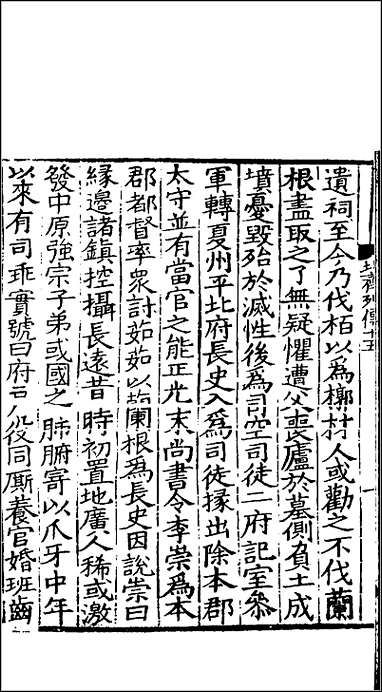 遺祠至今乃伐栢以為槨材人或勸之不伐蘭
根盡取之了無疑懼遭父喪廬於墓側負土成
墳憂毀殆於滅性後爲司空司徒二府記室參
軍轉夏州平北府長史入爲司徒掾出除本郡
太守並有當官之能正光末尚書令李崇爲本
郡都督率衆討茹茹以蘭根爲長史因說崇曰
緣邊諸鎮控攝長遠昔時初置地廣人稀或激
發中原強宗子弟或國之肺腑寄以爪牙中年
以來有司乖實號曰府戸役同厮養官婚班齒
齊列傳十五